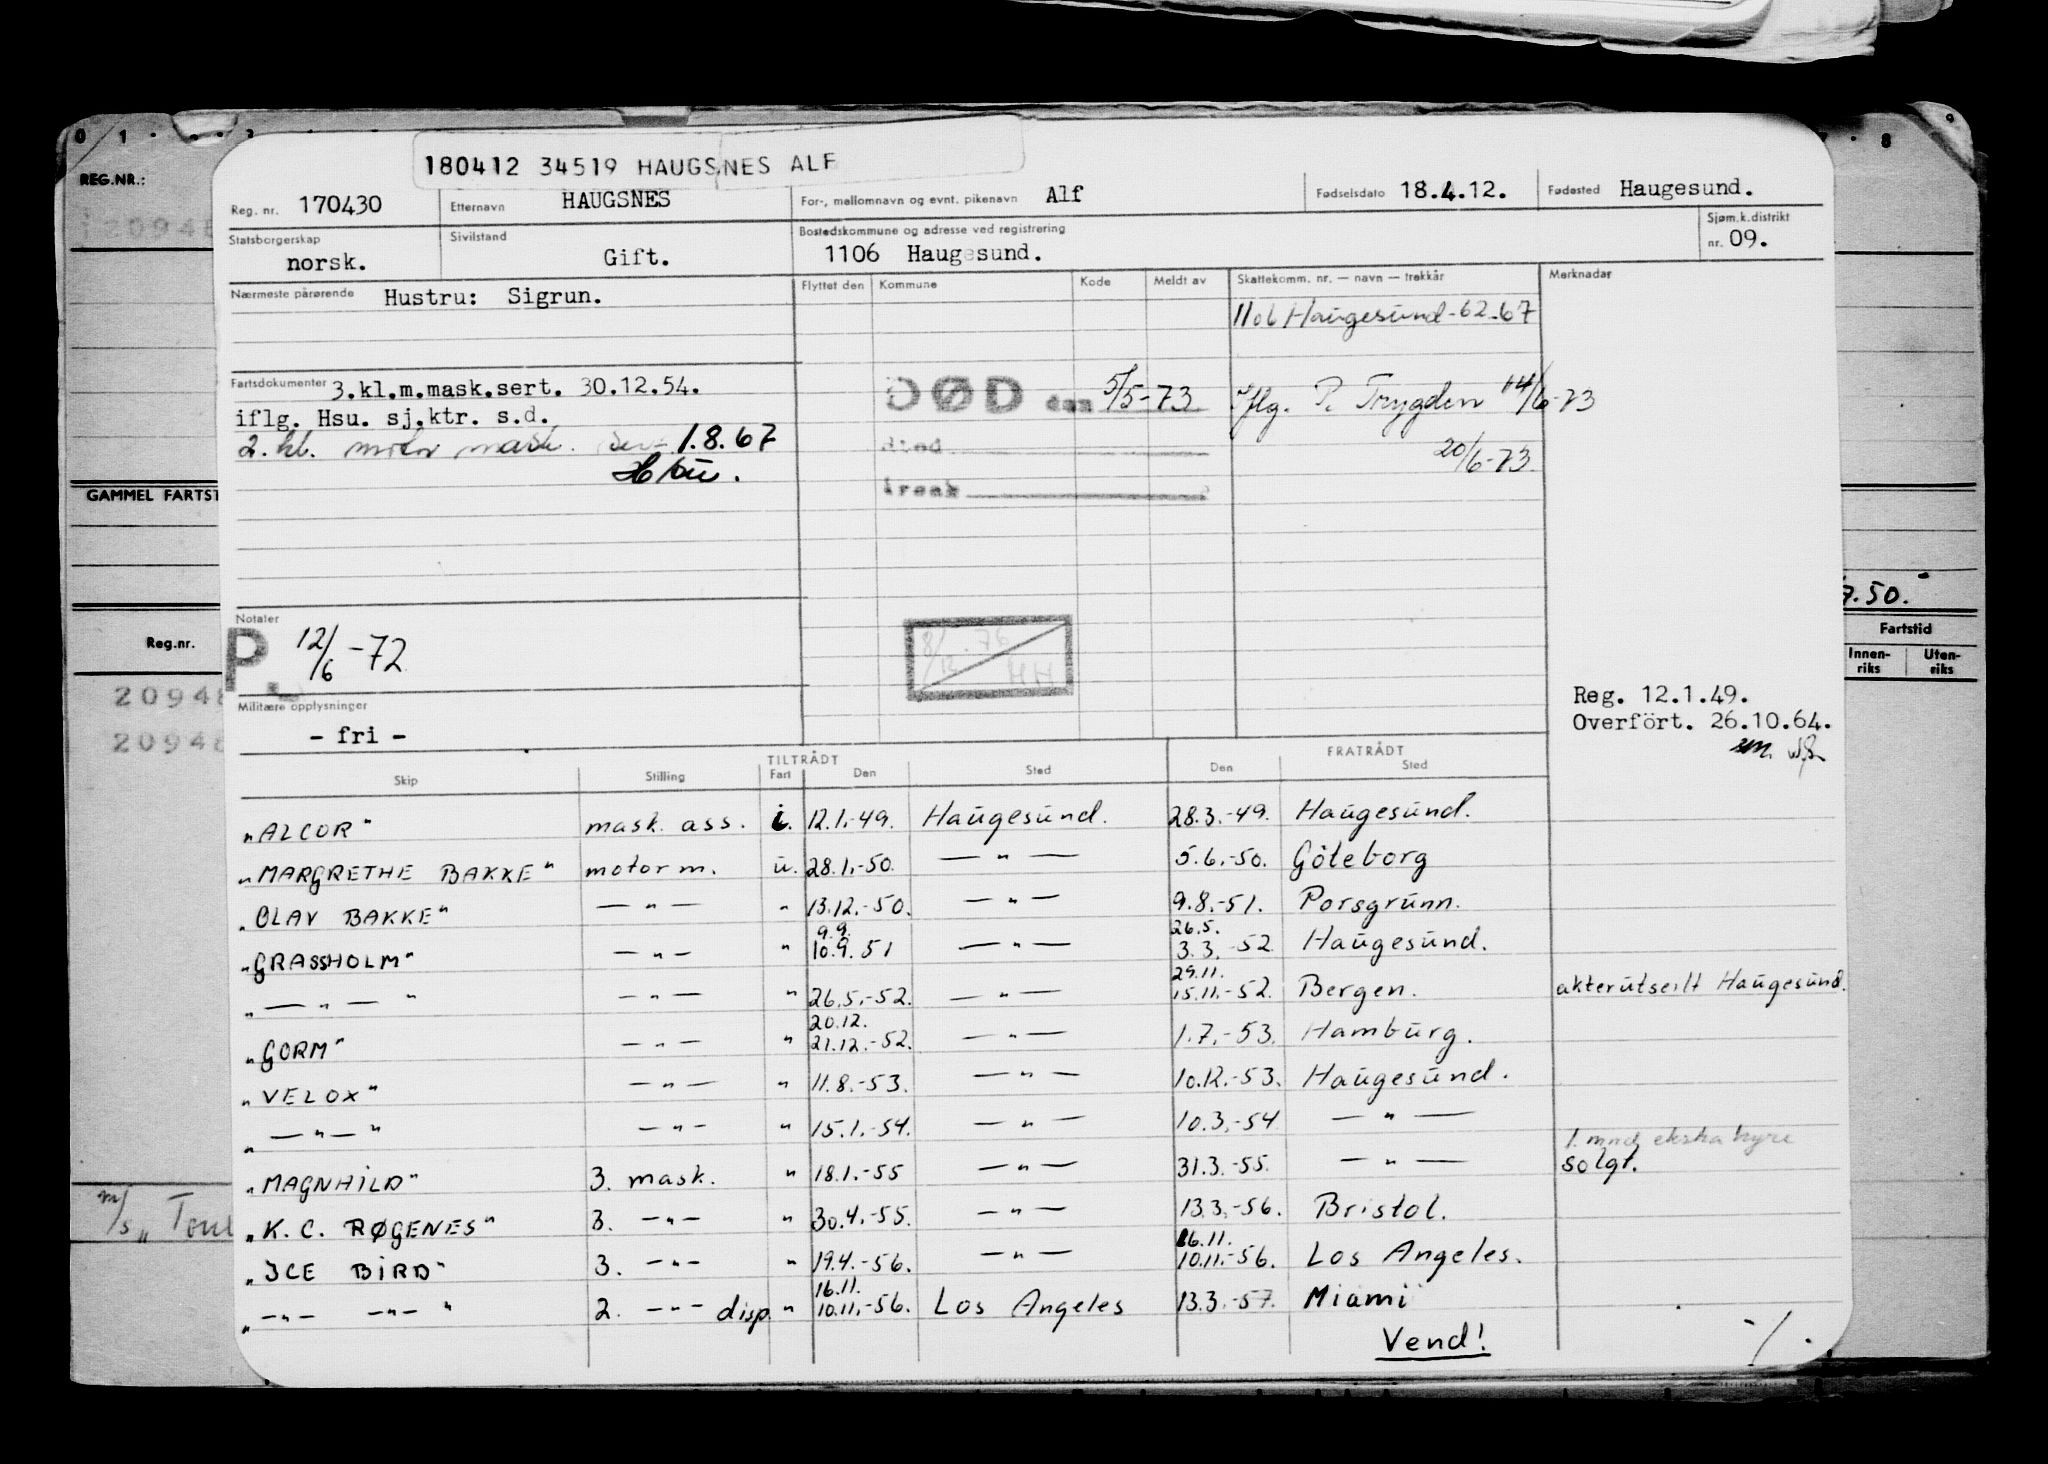 180412 34519 HAUGSNES ALF
REG.NR.:
Reg. nr. 170430 Etternavn HAUGSNES For-, mellomnavn og evnt. pikenavn Alf Fødselsdato 18.4.12. Fødested Haugesund.
Statsborgerskap norsk. Sivilstand Gift. Bostedskommune og adresse ved registrering 1106 Haugesund. Sjøm.k.distrikt nr. 09.
Nærmeste pårørende Hustru: Sigrun. Flyttet den Kommune Kode Meldt av Skattekomm. nr. — navn — trekkår Merknader
1106 Haugesund-62-67
Fartsdokumenter 3.kl.m.mask.sert. 30.12.54. DØD den 5/5-73 iflg. P. Trygden 14/6-73
iflg. Hsu. sj.ktr. s.d.
2. kl. motor mask. sert 1.8.67 sted 20/6-73
årsak
GAMMEL FARTST
7.50.
Notater
P. 12/6-72
8/12.76
HH
Reg.nr.
Fartstid
Innen-riks Uten-riks
20948
20948
Militære opplysninger
- fri -
Reg. 12.1.49.
Overfört. 26.10.64.
TILTRÅDT FRATRÅDT
Skip Stilling Fart Den Sted Den Sted
"ALCOR" mask. ass. i. 12.1.-49. Haugesund. 28.3.-49. Haugesund.
"MARGRETHE BAKKE" motor m. u. 28.1.-50. — " — 5.6.-50. Göteborg
"OLAV BAKKE" — " — " 13.12.-50. — " — 9.8.-51. Porsgrunn.
9.9. 26.5.
"GRASSHOLM" — " — " 10.9.51 — " — 3.3.-52 Haugesund.
29.11.
" — " — " — " — " 26.5.-52. — " — 15.11.-52. Bergen. akterutseilt Haugesund.
20.12.
"GORM" — " — " 21.12.-52. — " — 1.7.-53. Hamburg.
"VELOX" — " — " 11.8.-53. — " — 10.12.-53. Haugesund.
" — " — " — " — " 15.1.-54. — " — 10.3.-54 — " —
1. mnd ekstra hyre
"MAGNHILD" 3. mask. " 18.1.-55 — " — 31.3.-55. — " — solgt.
"K. C. RØGENES" 3. — " — " 30.4.-55. — " — 13.3.-56. Bristol.
16.11.
"ICE BIRD" 3. — " — " 19.4.-56. — " — 10.11.-56. Los Angeles.
16.11.
" — " — — " — " 2. — " — disp. " 10.11.-56. Los Angeles 13.3.-57. Miami
Vend!
m/s "